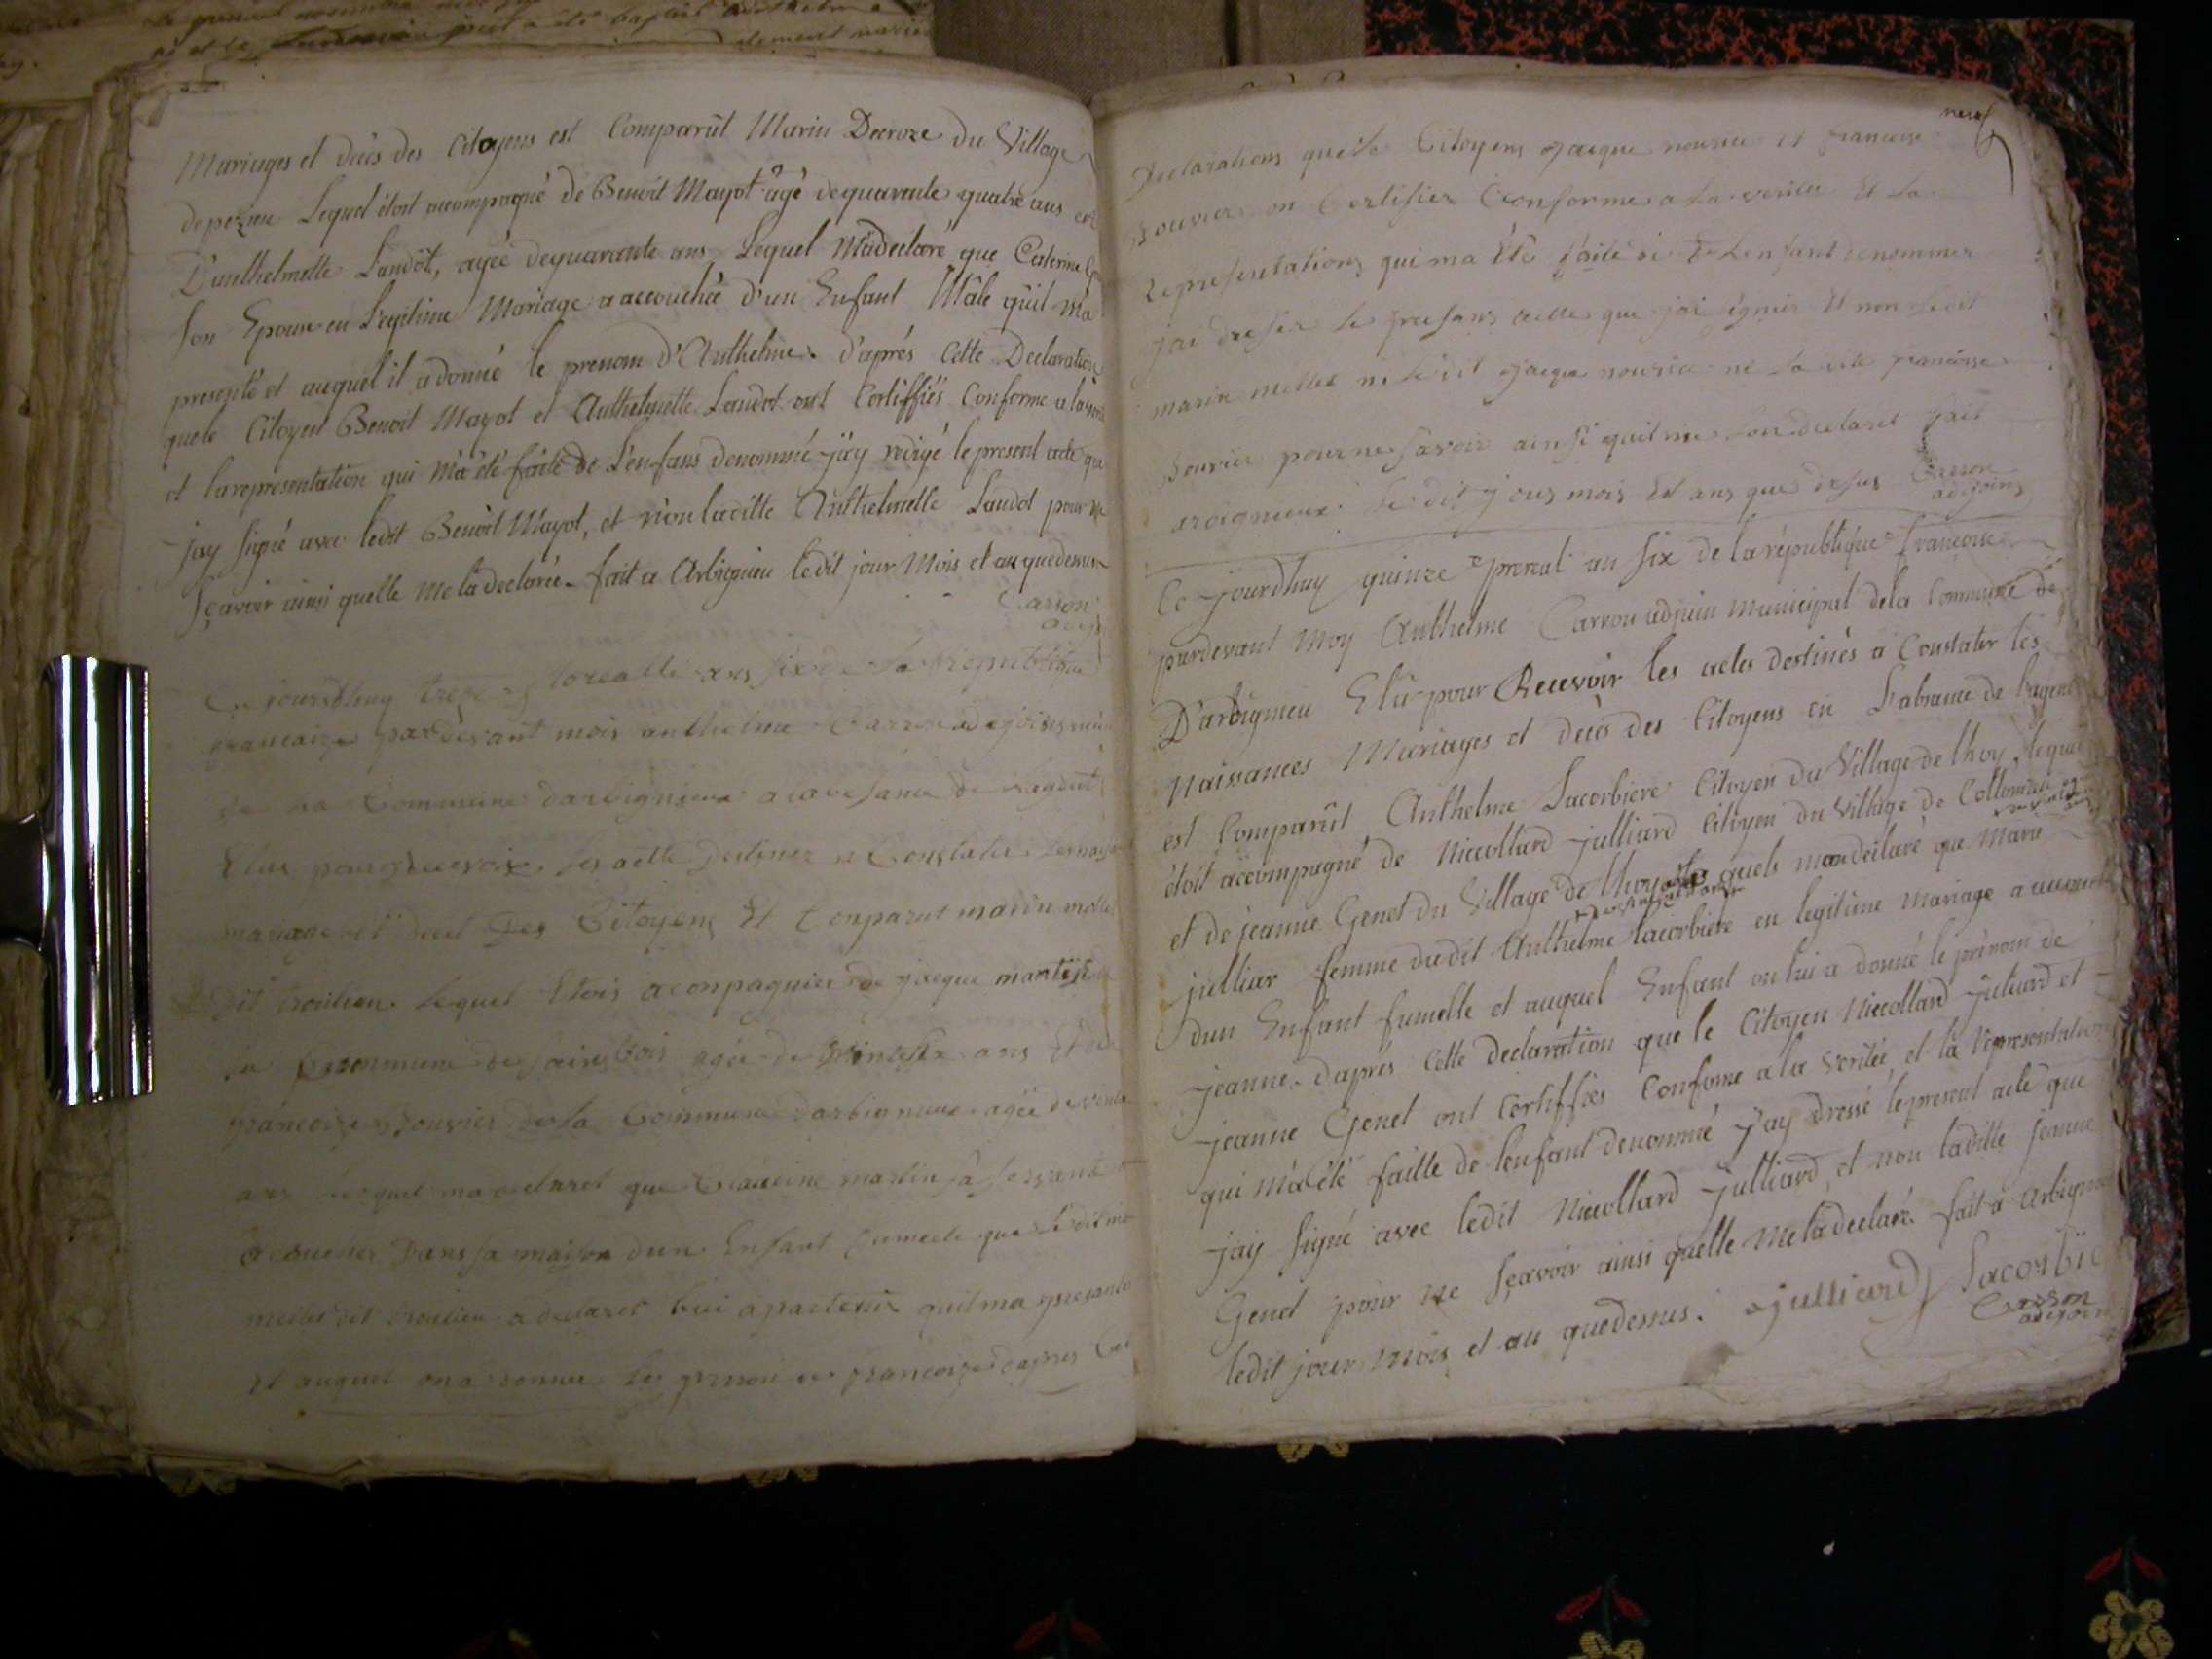 Mariages et décès des Citoyens est Comparût Marin Decroze du Village
de pezieu Lequel étoit acompagné de Benoit Mayot âgé dequarante quatre ans et
D'anthelmette Landot, agée dequarante ans, Lequel M'adeclaré que Caterine
son Epouse en Legitime Mariage a accouchée d'un Enfant Mâle qu'il m'a
presenté et auquel il a donné le prenom d'Anthelme. d'aprés Cette Declaration
que le Citoyen Benoit Mayot et Anthelmette Landot ont Certiffiés Conforme a la
et la representation qui M'a été faite de L'enfans denommé j'ay redigé le present acte que
jay signé avec ledit Benoit Mayot, et non laditte Anthelmette Landot pour ne
sçavoir ainsi quelle me la declarée. fait a Arbignieu ledit jour Mois et an quedessus
Carron
Ce jourdhuy treze florealle ans six de la Republique
francaize pardevant mois anthelme Carron adejoins
de la Commune darbignieux a labesance de lagent
Elus pour recevoir les actte destinez a Constater
mariage et decet des Citoyens Et Conparut marin mollet
dit Lequel Etois aconpagnier de jacque
la Commune de agée de ans Et de
francoize bouvier de la Commune darbignieux agée de
ans Lequel ma declaret que Claudine martin sa servante
acoucher dans sa maison dun Enfant fumelle que le dit
mollet dit a declaret lui apartenir quil ma presanté
et auquel on a donner le prenon de francoize dapres
neuf
Declarations que le Citoyens jacque nourice et francoise
bouvier on Certifier Conforme a la verité Et la
representations qui ma Eté faite de Lenfant denommer
jai dresser le presans actte que jai signer Et non ledit
marin mollet ni ledit jacque nourice ne la dite francoise
bouvier pour ne savoir ainsi quil me lon declaret fait
arbignieux le dit jour mois Et ans que desus Carron
adejoins
Ce jourdhuy quinze preréal an six de la république francoise
pardevant Moy Anthelme Carron adjoin Municipal dela Commune de
D'arbignieu Elû pour Recevoir les actes destinés a Constater les
Naissances Mariages et décès des Citoyens en L'absance de l'agent
est Comparût Anthelme Lacorbiere Citoyen du Village de thoy, lequel
étoit acompagné de Nicollard julliard Citoyen du Village de Collomieu
et de jeanne Genet du Village de thoy les quels mondeclaré que Marie
julliar femme dudit Anthelme Lacorbiere en legitime Mariage a accouché
dun Enfant fumelle et auquel Enfant on lui a donné le prénom de
jeanne. daprés Cette declaration que le Citoyen Nicollard juliard et
jeanne Genet ont Certiffiés Conforme a la Veritée, et la representation
qui M'a été faitte de l'enfant denommé j'ay dressé le present acte que
jay signé avec ledit Nicollard julliard, et non laditte jeanne
Genet pour ne sçavoir ainsi quelle Me la declaré. fait a Arbignieu
ledit jour Mois et an quedessus. julliard Lacorbie
Carron
adejoin